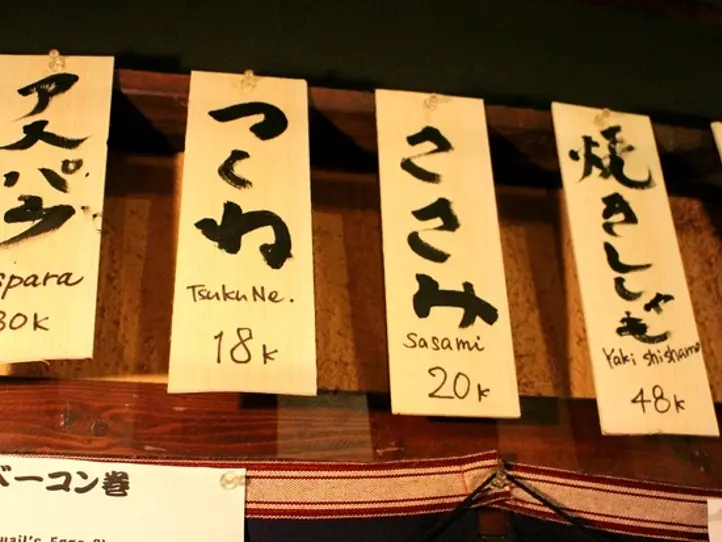 アスパラ
spara
30K
つくね
TsukuNe.
18K
ささみ
Sasami
20K
焼きししゃも
Yaki shishamo
48K
ベーコン巻
uail's Eggs